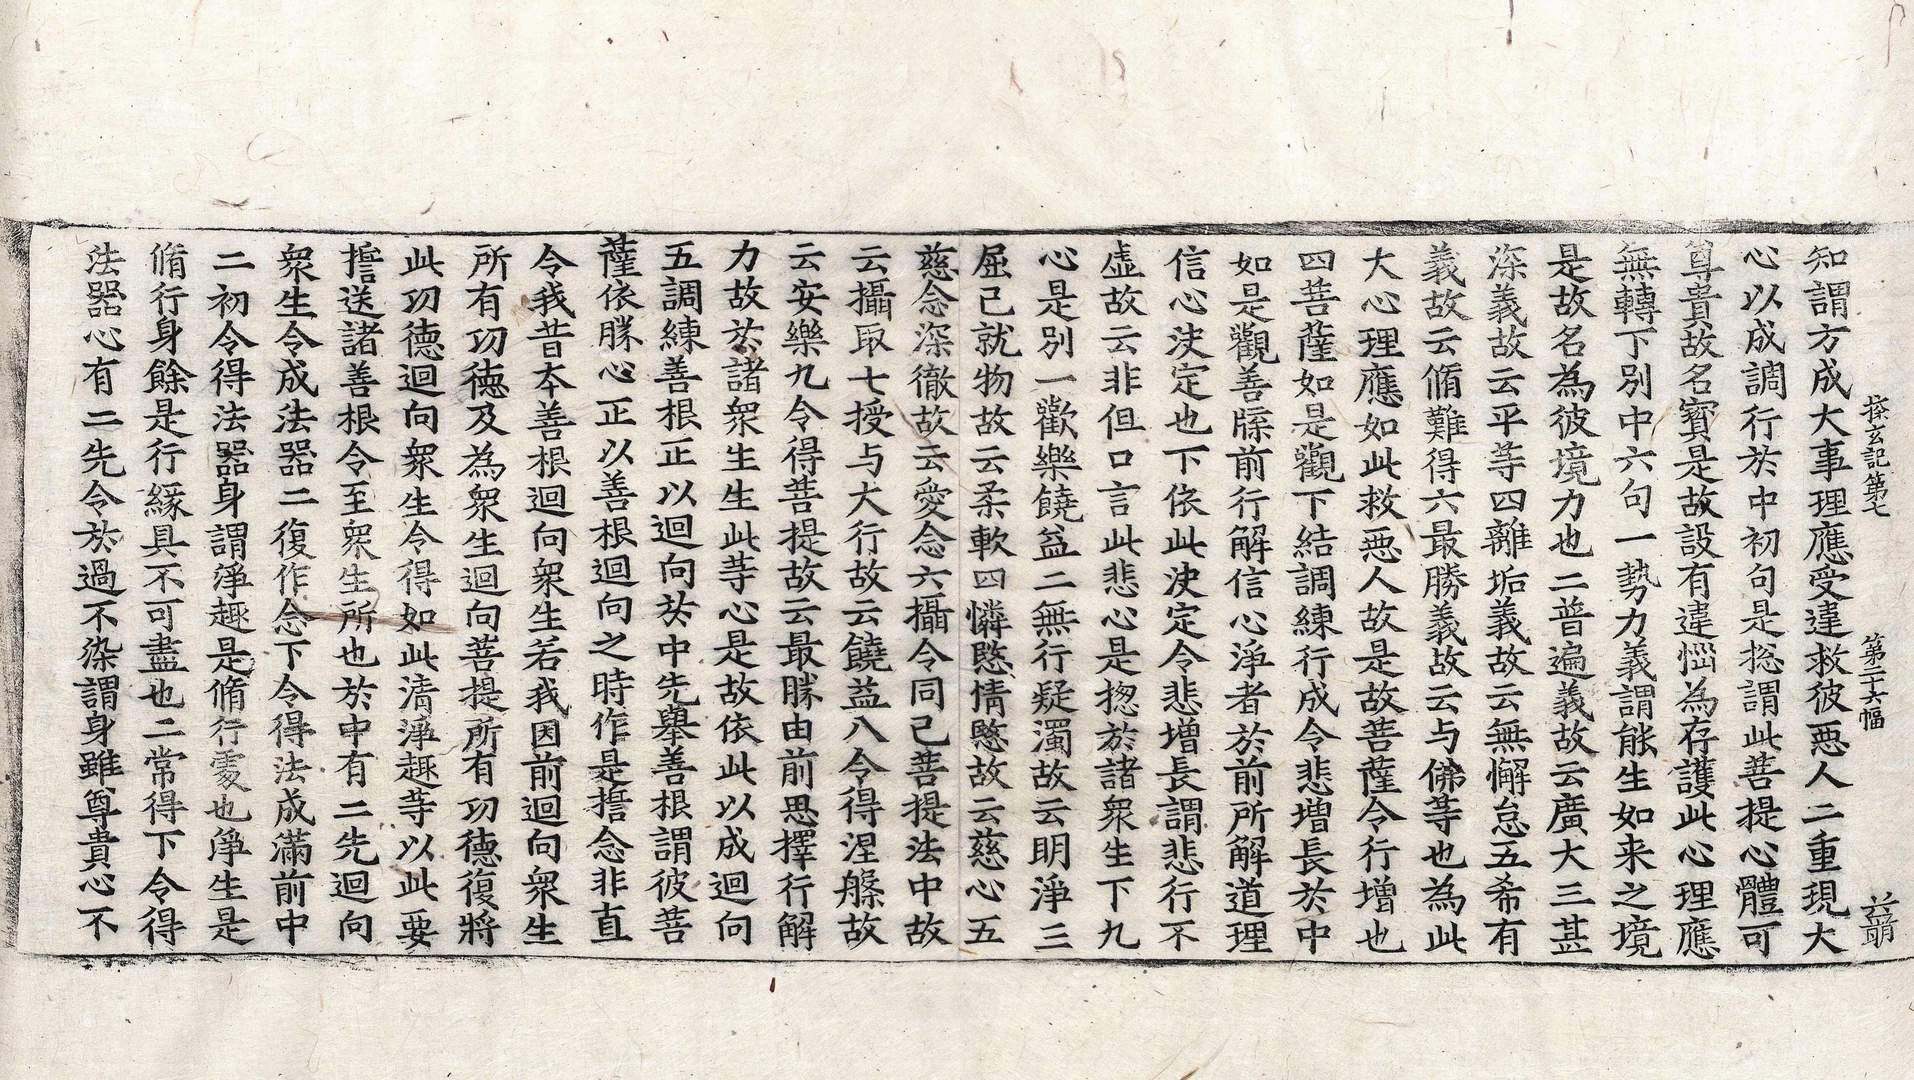 探玄記第七　第二十六幅
知謂方成大事理應受違救彼惡人二重現大
心以成調行於中初句是揔謂此菩提心體可
尊貴故名寳是故設有違惱為存護此心理應
無轉下別中六句一勢力義謂能生如来之境
是故名為彼境力也二普遍義故云廣大三甚
深義故云平等四離垢義故云無懈怠五希有
義故云脩難得六最勝義故云与佛等也為此
大心理應如此救惡人故是故菩薩令行增也
四菩薩如是觀下結調練行成令悲增長於中
如是觀善牒前行解信心淨者於前所解道理
信心决定也下依此决定令悲增長謂悲行不
虛故云非但口言此悲心是揔於諸衆生下九
心是別一歡樂饒益二無行疑濁故云明淨三
屈己就物故云柔軟四憐愍情愍故云慈心五
慈念深徹故云愛念六攝令同己菩提法中故
云攝取七授与大行故云饒益八令得涅槃故
云安樂九令得菩提故云最勝由前思擇行解
力故於諸衆生生此等心是故依此以成迴向
五調練善根正以迴向於中先舉善根謂彼菩
薩依勝心正以善根迴向之時作是誓念非直
令我昔本善根迴向衆生若我因前迴向衆生
所有功德及為衆生迴向菩提所有功德復將
此功德迴向衆生令得如此清淨趣等以此要
誓送諸善根令至衆生所也於中有二先迴向
衆生令成法器二復作念下令得法成滿前中
二初令得法器身謂淨趣是脩行處也淨生是
脩行身餘是行緣具不可盡也二常得下令得
法器心有二先令於過不染謂身雖尊貴心不